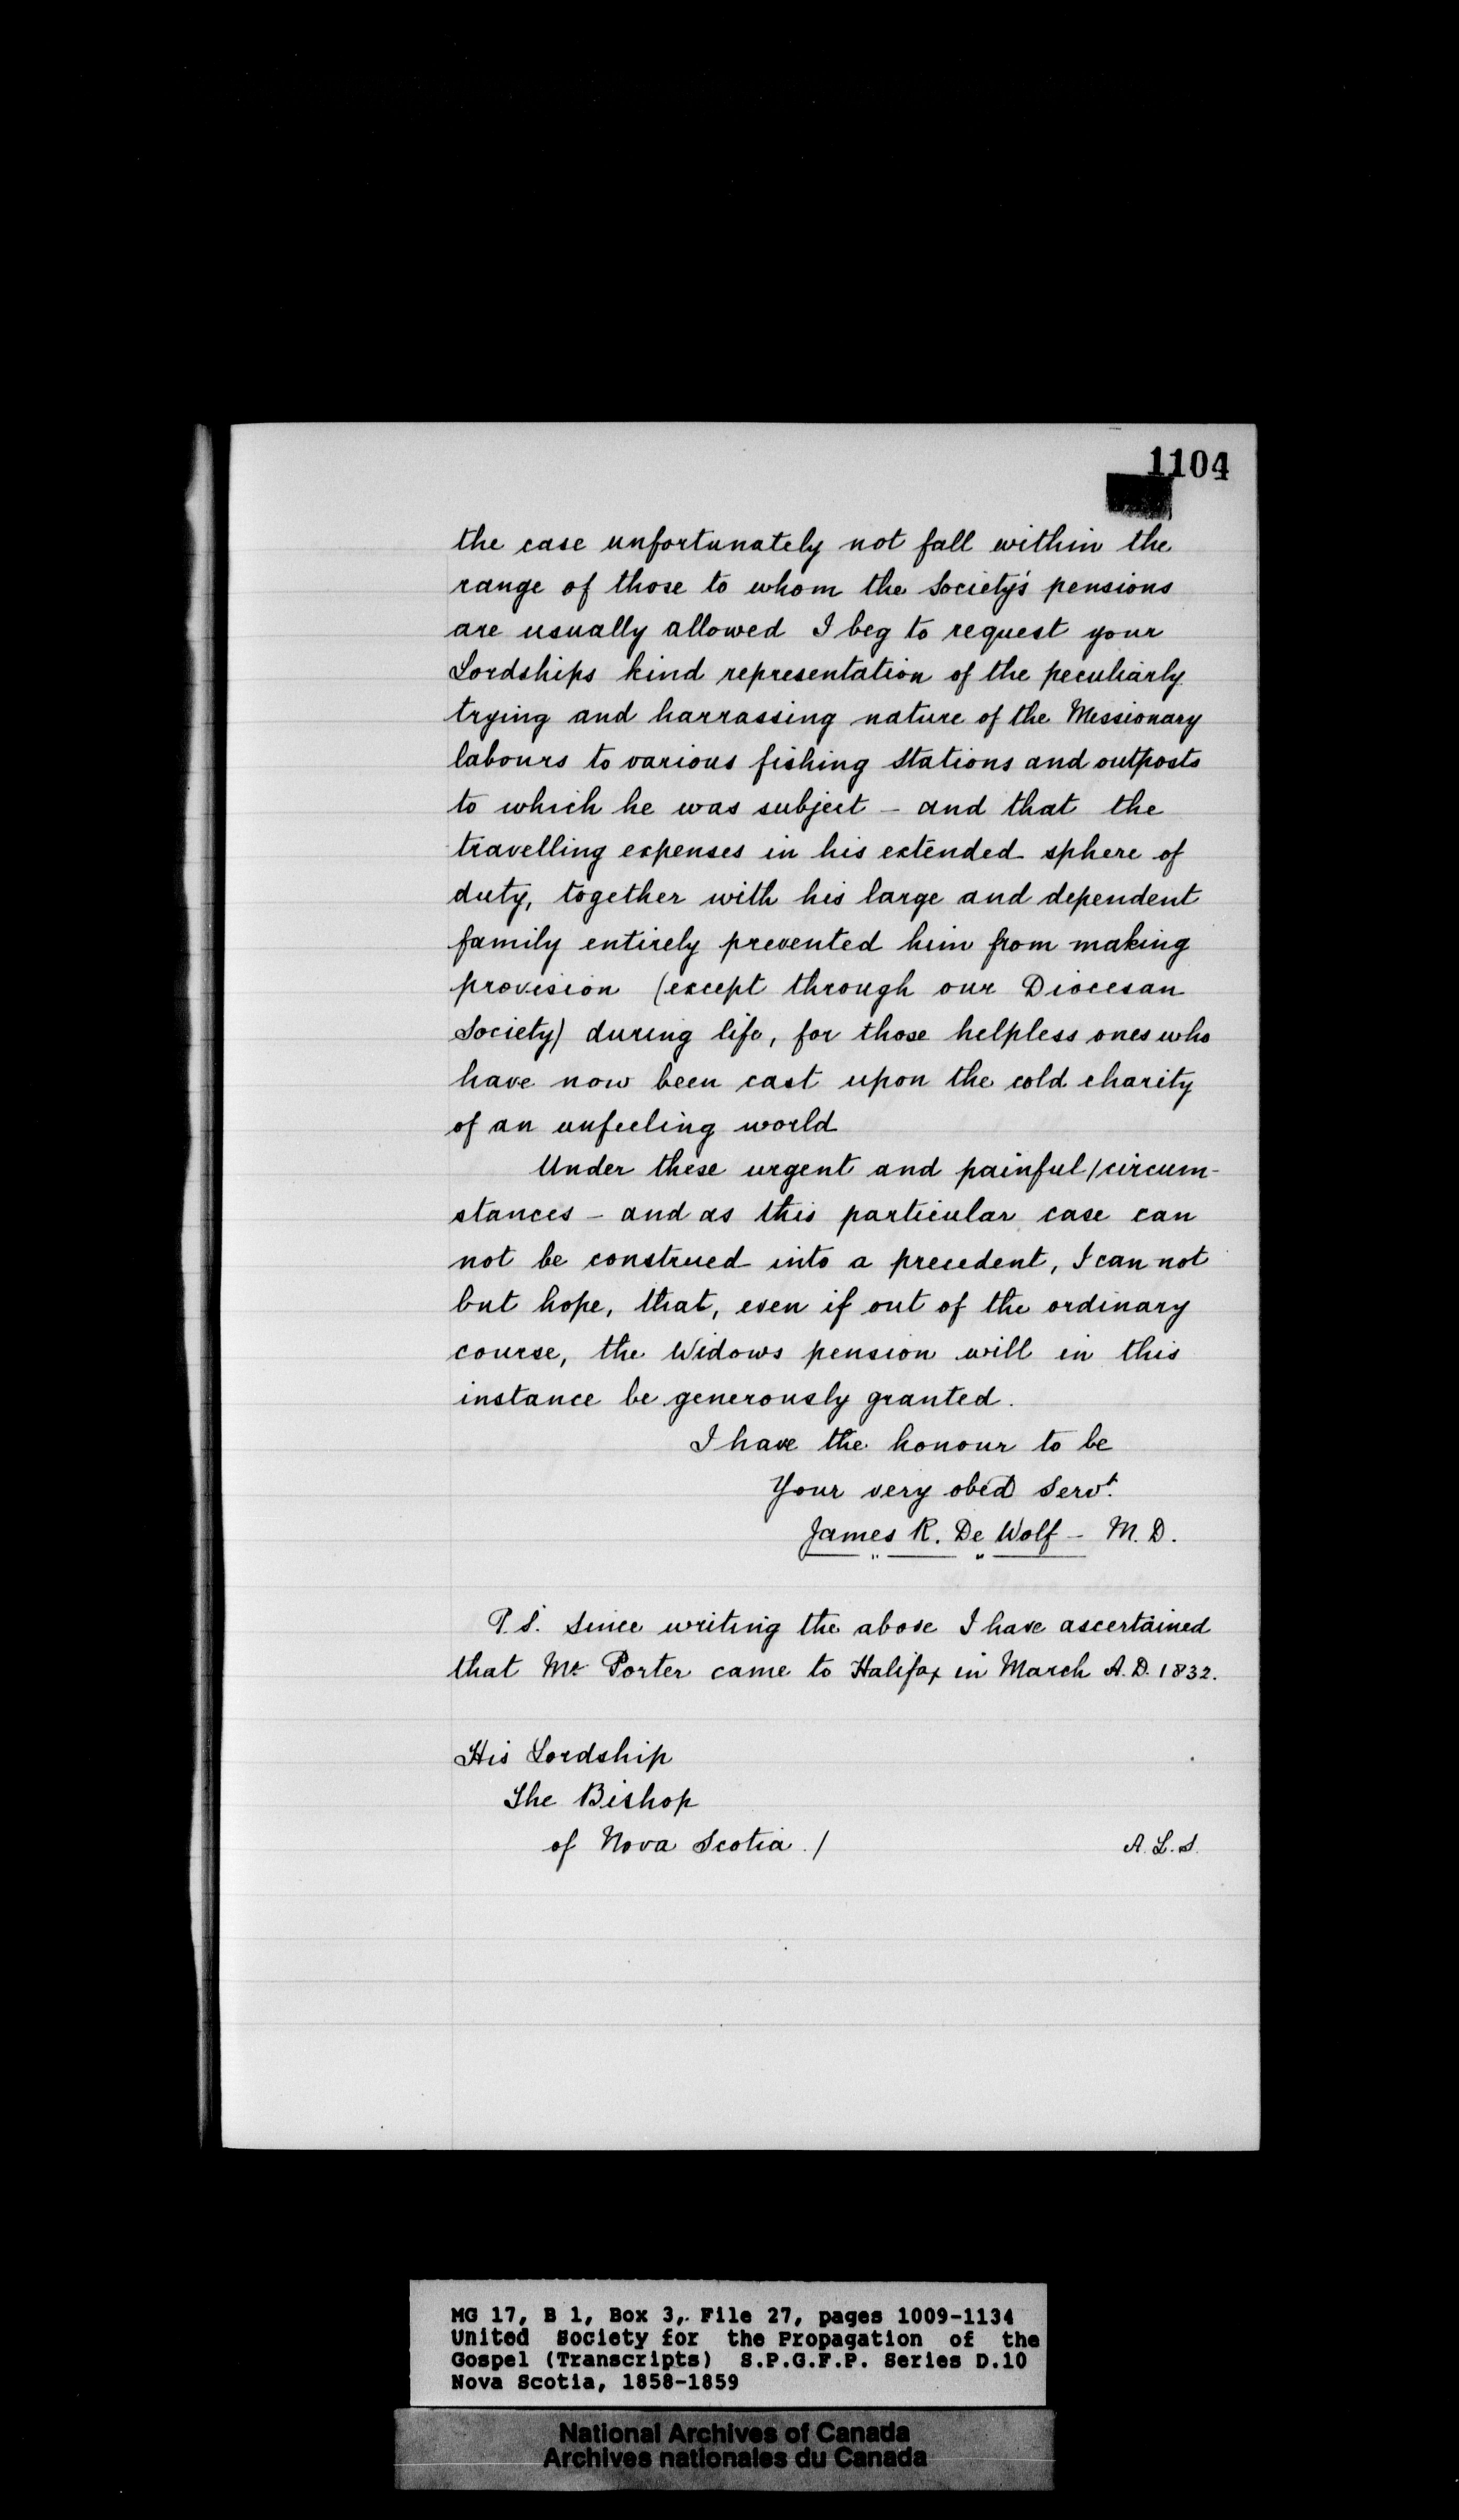 1104
the case unfortunately not fall within the
range of those to whom the Society's pensions
are usually allowed I beg to request your
Lordships kind representation of the peculiarly
trying and harrassing nature of the Missionary
labours to various fishing stations and outposts
to which he was subject – and that the
travelling expenses in his extended sphere of
duty, together with his large and dependent
family entirely prevented him from making
provision (except through our Diocesan
Society) during life, for those helpless ones who
have now been cast upon the cold charity
of an unfeeling world
Under these urgent and painful/circum-
stances – and as this particular case can
not be construed into a precedent, I can not
but hope, that, even if out of the ordinary
course, the Widows pension will in this
instance be generously granted.
I have the honour to be
Your very obed Servt.
James R. De Wolf – M. D.
P.S. Since writing the above I have ascertained
that Mr Porter came to Halifax in March A.D. 1832.
His Lordship
The Bishop
of Nova Scotia ./
A. L. S.
MG 17, B 1, Box 3, File 27, pages 1009-1134
United Society for the Propagation of the
Gospel (Transcripts) S.P.G.F.P. Series D.10
Nova Scotia, 1858-1859
National Archives of Canada
Archives nationales du Canada